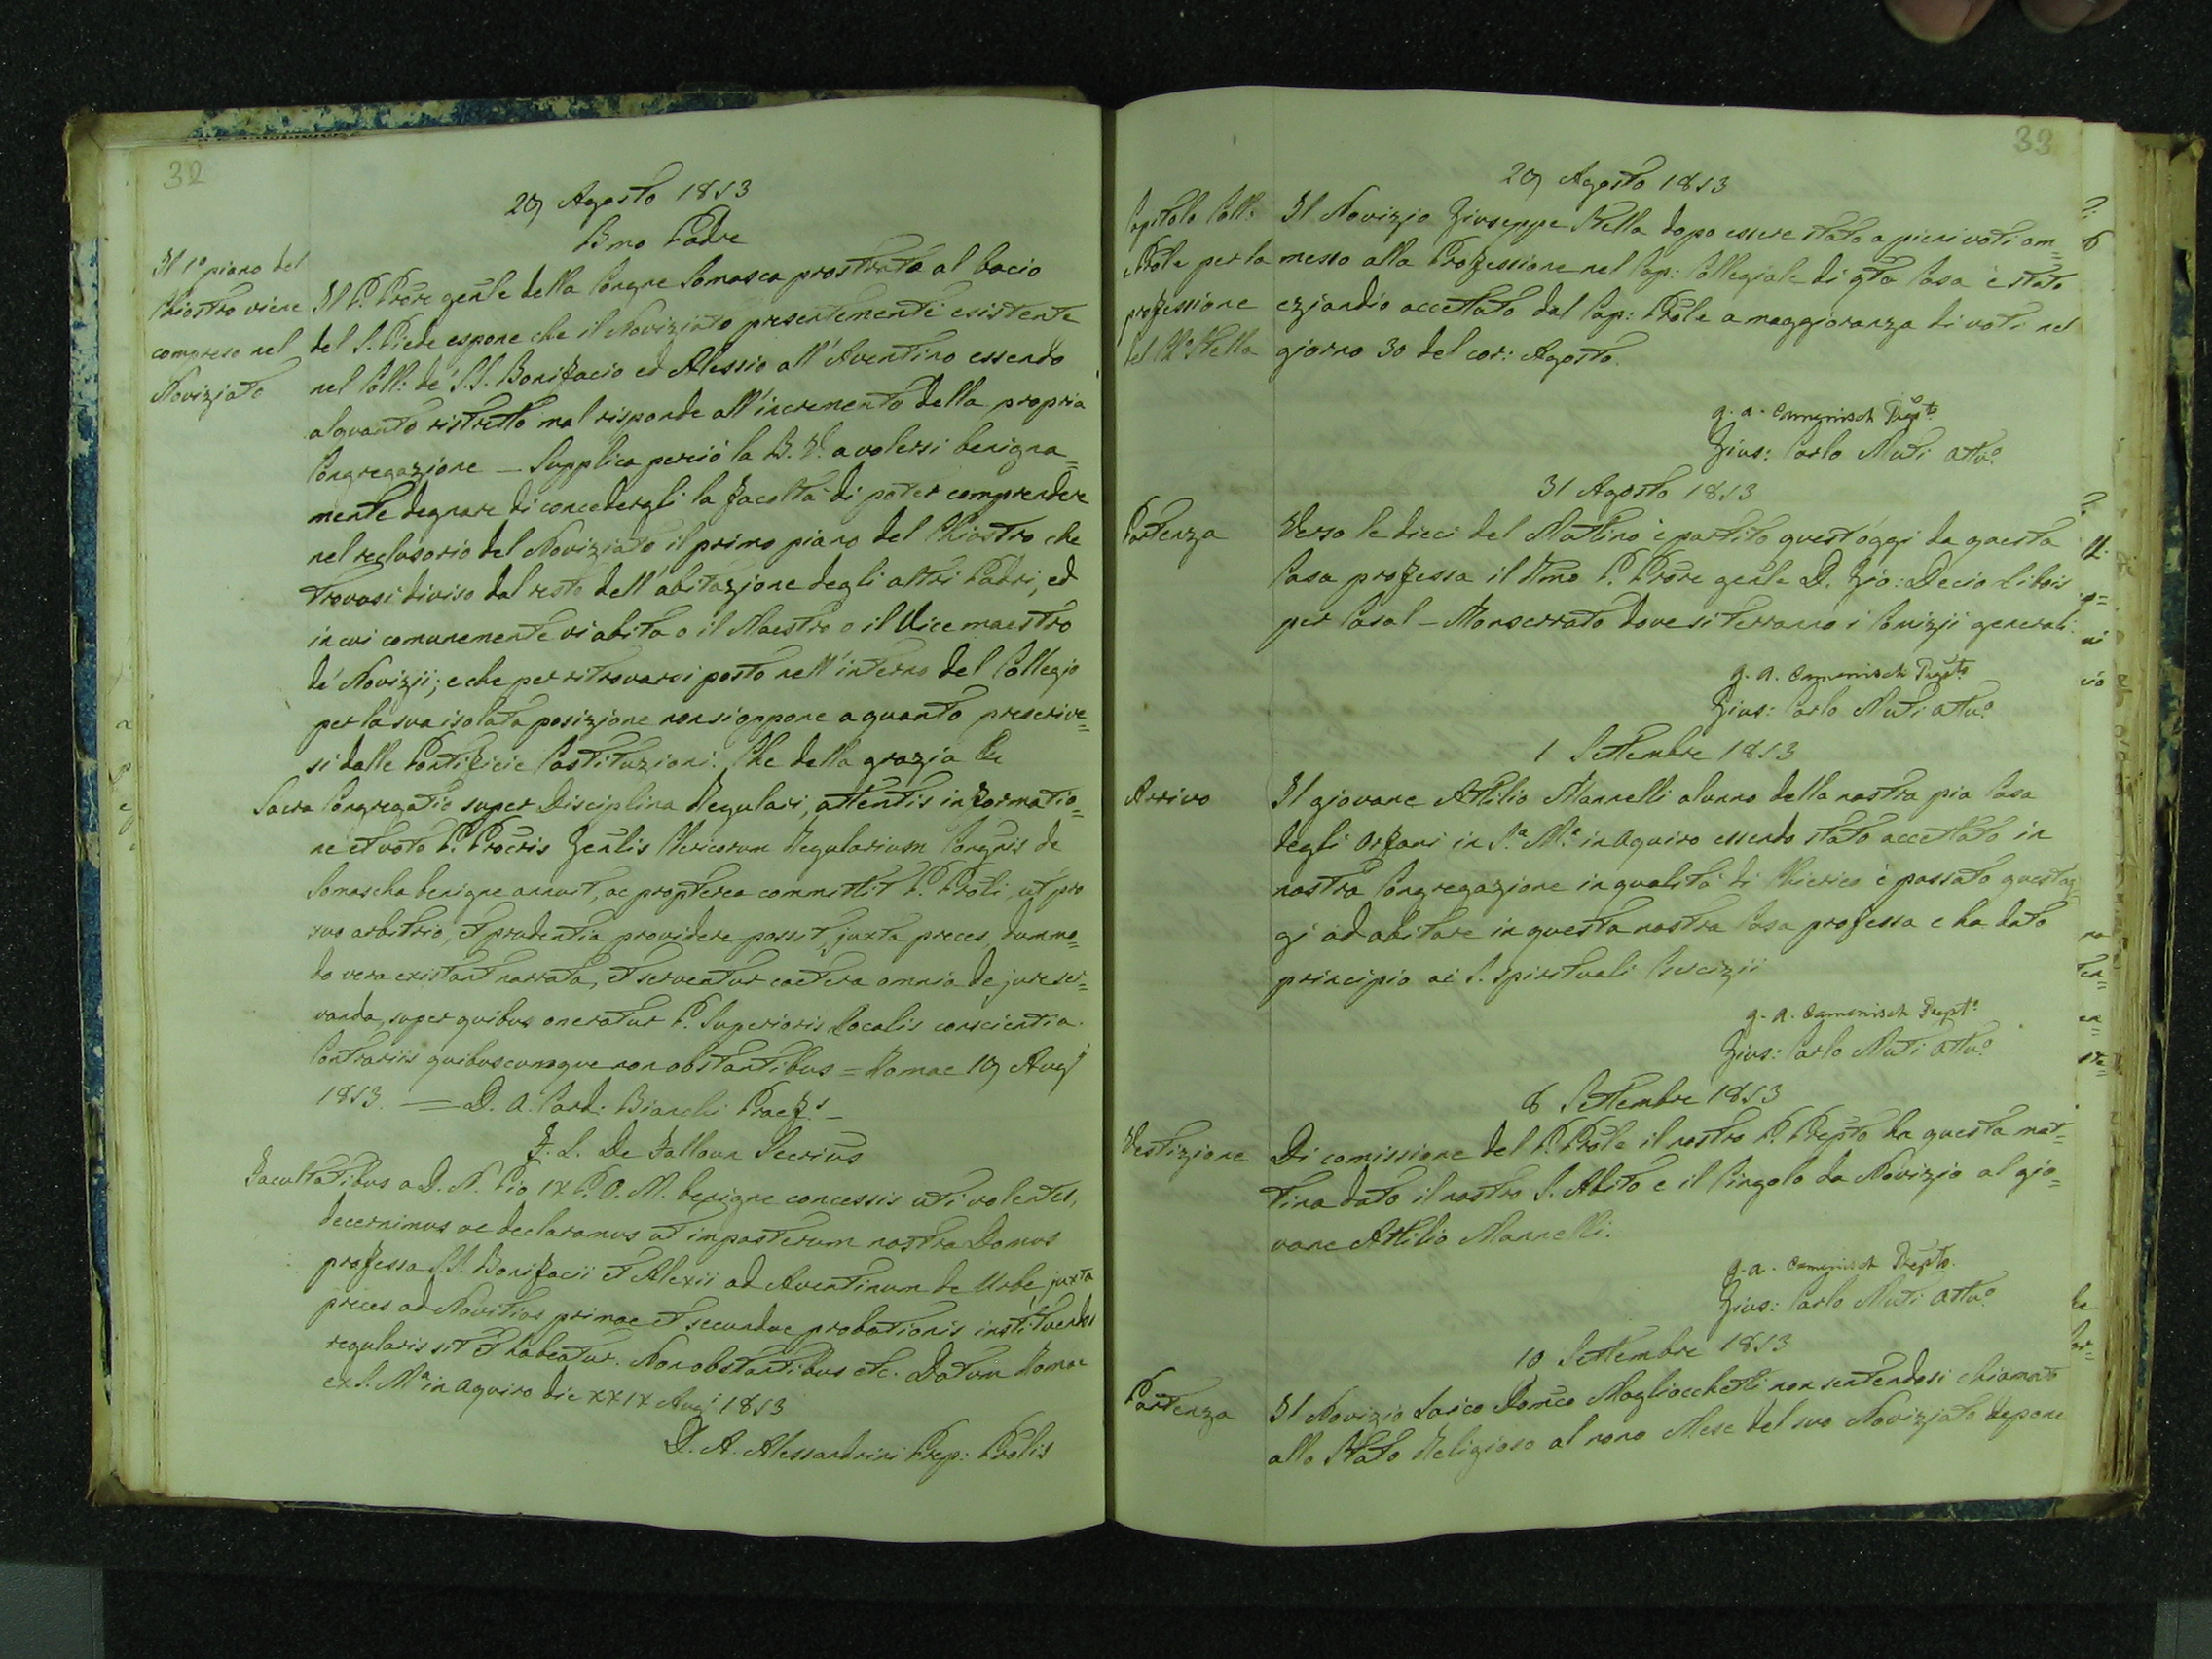 32
29 Agosto 1853
Bmo Padre
Il 1º piano del
Chiostro viene
compreso nel
Noviziato
Il P. Prŏre gen̄le della Congne Somasca prostrato al bacio
del S. Piede espone che il Noviziato presentemente esistente
nel Coll: de' S.S. Bonifacio ed Alessio all'Aventino essendo
alquanto ristretto mal risponde all'incremento della propria
Congregazione – Supplica perciò la B. V. a volersi benigna=
mente degnare di concedergli la facoltà di poter comprendere
nel reclusorio del Noviziato il primo piano del Chiostro che
trovasi diviso dal resto dell'abitazione degli altri Padri, ed
in cui comunemente vi abita o il Maestro o il Vice maestro
de' Novizii; e che per ritrovarsi posto nell'interno del Collegio
per la sua isolata posizione non si oppone a quanto prescrive=
si dalle Pontificie Costituzioni. Che della grazia
Sacra Congregatio super Disciplina Regulari, attentis informatio=
ne et voto P. Procris Gen̄lis Clericorum Regularium Congnis de
Somascha benigne annuit, ac propterea committit P. Proli, ut pro
suo arbitrio, et prudentia providere possit, juxta preces, dummo=
do vera existant narrata, et serventur caetera omnia de jure ser=
vanda, super quibus oneratur P. Superioris localis conscientia.
Contrariis quibuscumque non obstantibus = Romae 19 Augi
1853. — D. A. Card: Bianchi Praef.s –
F. S. De Falloux Secrius
Facultatibus a D. N. Pio IX P. O. M. benigne concessis uti volentes,
decernimus ac declaramus ut imposterum nostra Domus
professa S.S. Bonifacii et Alexii ad Aventinum de Urbe, juxta
preces ad Novitios primae et secundae probationis instituendos
regularis sit et habeatur. Non obstantibus etc. Datum Romae
ex S. Ma in Aquiro die XXIX Augi 1853
D. A. Alessandrini Prep: Prolis
33
29 Agosto 1853
Capitolo Coll:
Prole per la
professione
del Nº Stella
Il Novizio Giuseppe Stella dopo essere stato a pieni voti am=
messo alla Professione nel Cap: Collegiale di qta Casa è stato
eziandio accettato dal Cap: Prole a maggioranza di voti nel
giorno 30 del cor: Agosto.
g. a. Camenisch Prepto
Gius: Carlo Muti Attuo
31 Agosto 1853
Partenza
Verso le dieci del Mattino è partito quest'oggi da questa
Casa professa il Rmo P. Prŏre gen̄le D. Gio: Decio Libois
per Casal-Monserrato dove si terranno i Comizii generali.
g. a. Camenisch Prepto
Gius: Carlo Muti Attuo
1 Settembre 1853
Arrivo
Il giovane Attilio Mannelli alunno della nostra pia Casa
degli Orfani in S.a M.a in Aquiro essendo stato accettato in
nostra Congregazione in qualità di Chierico è passato quest'og=
gi ad abitare in questa nostra Casa professa e ha dato
principio ai S. spirituali Esercizii
g. a. Camenisch Prepto
Gius: Carlo Muti Attuo
8 Settembre 1853
Vestizione
Di comissione del P. Prole il nostro P. Prepto ha questa mat=
tina dato il nostro S. Abito e il Cingolo da Novizio al gio=
vane Attilio Mannelli.
g. a. Camenisch Prepto
Gius: Carlo Muti Attuo
10 Settembre 1853
Partenza
Il Novizio Laico Domco Magliocchetti non sentendosi chiamato
allo Stato Religioso al nono Mese del suo Noviziato depone